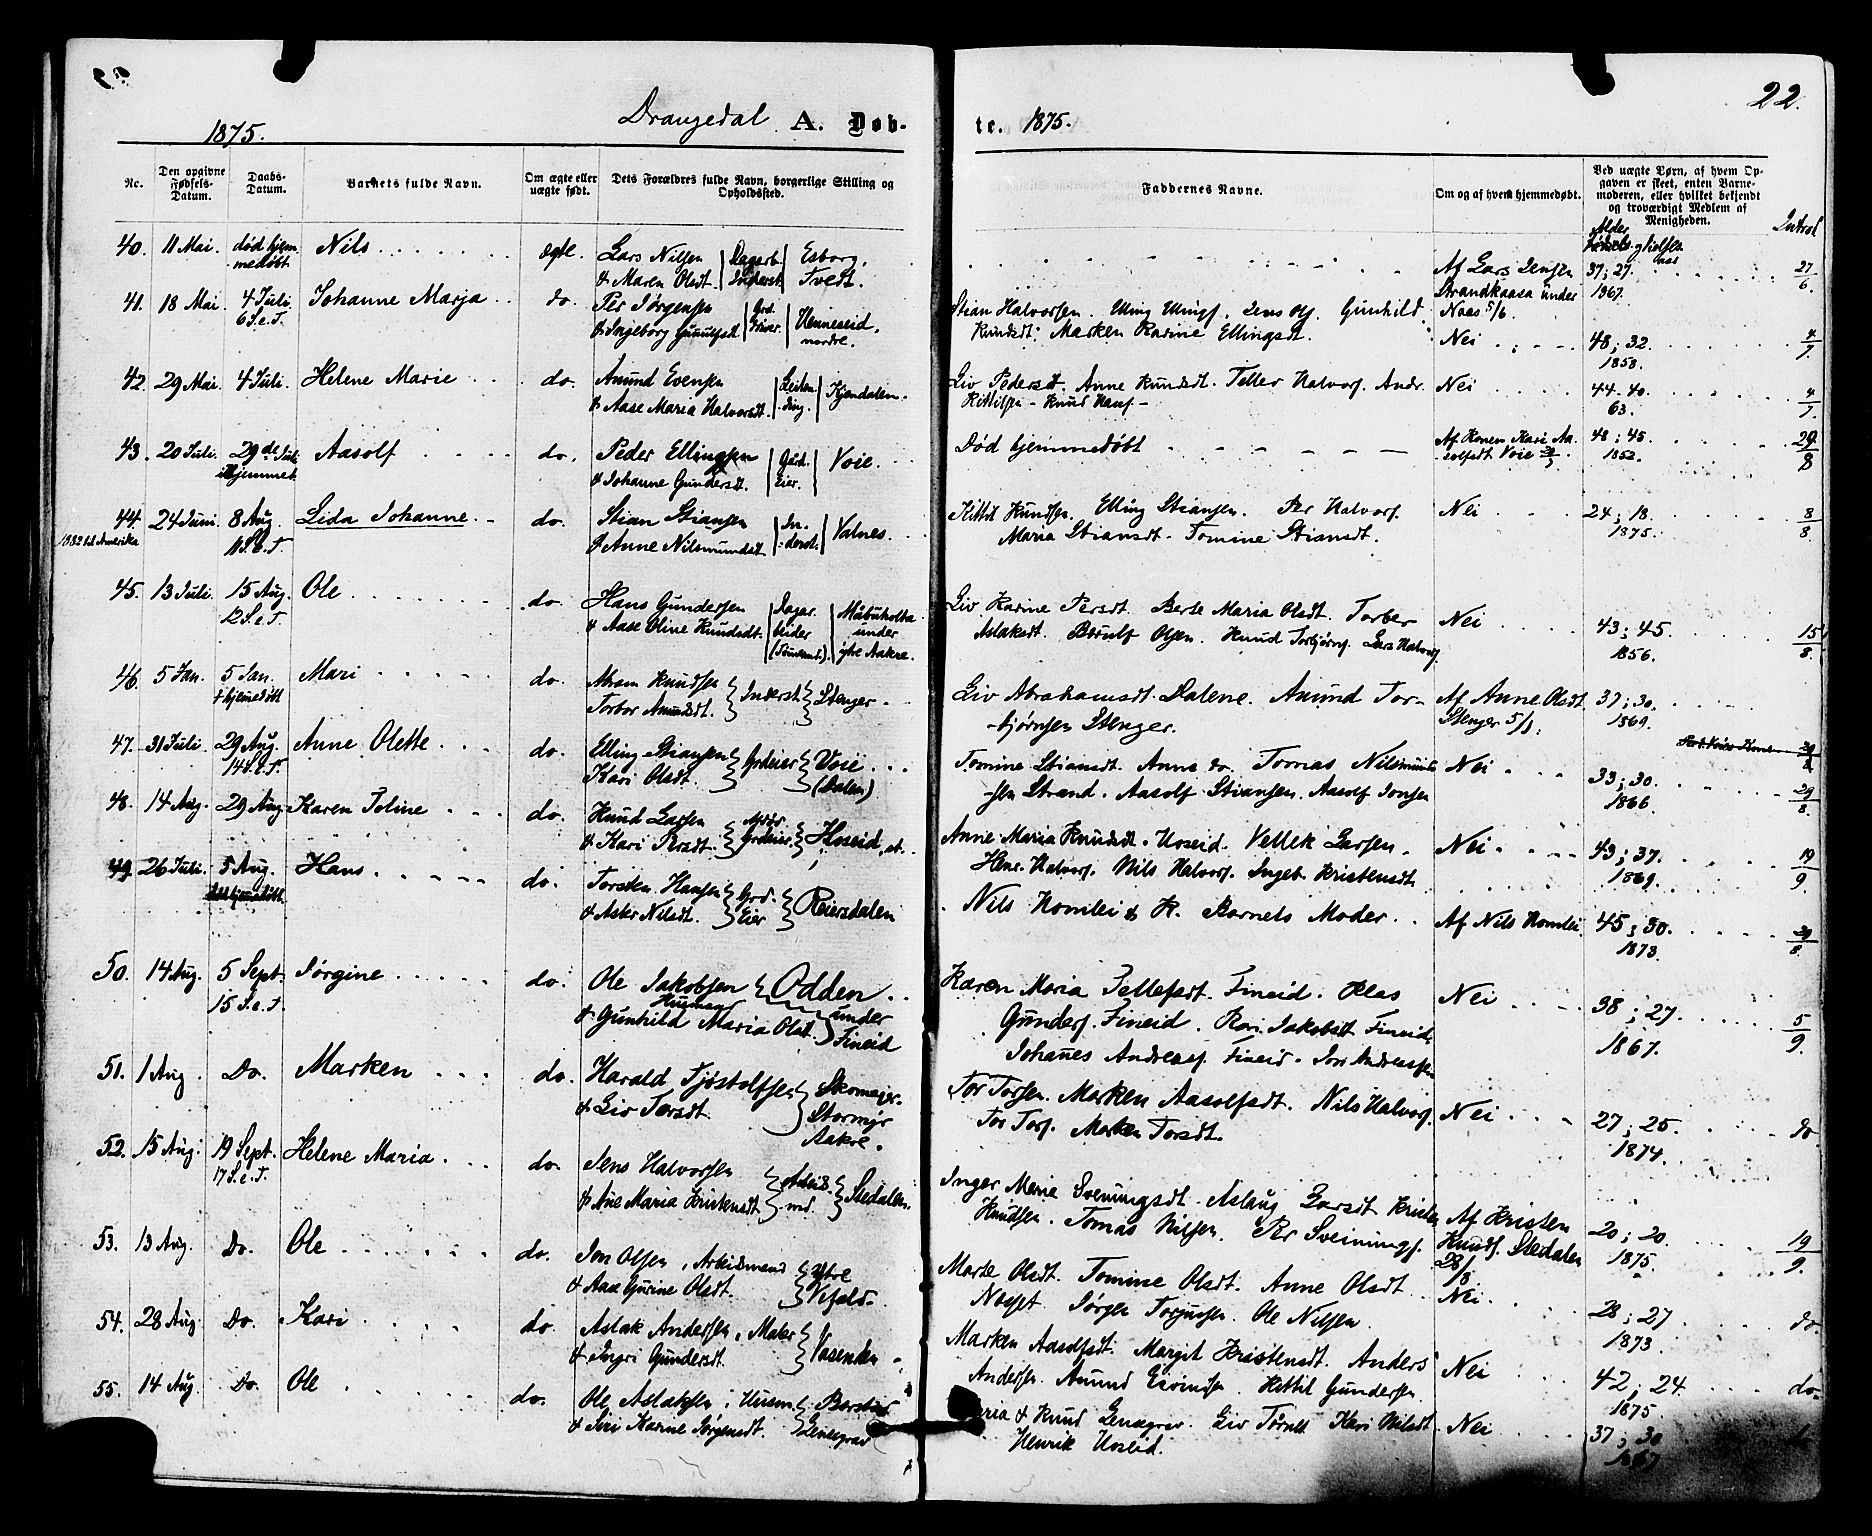 Drangedal A. Døb-
te. 1875.
22.
1875.
No.
Den opgivne Fødsels-Datum.
Daabs-Datum.
Barnets fulde Navn.
Om ægte eller uægte født.
Dets Forældres fulde Navn, borgerlige Stilling og Opholdssted.
Faddernes Navne.
Om og af hvem hjemmedøbt.
Ved uægte Børn, af hvem Op-
gaven er skeet, enten Barne-
moderen, eller hvilket bekjendt
og troværdigt Medlem af
Menigheden.
40. 11 Mai. død hjem Nils ægte. Lars Nilsen Dagarb. Esborg, Af Lars Jensen 37; 27. 27/6.
medøbt & Maren Olsdt. Inderst Tvedt. Strandkaasa under 1867.
41. 18 Mai 4 Juli Johanne Marja do. Per Jørgensen Grd. Henneseid, Stian Halvorsen. Gunhild Naas 5/6
6 S.e.T. & Ingeborg nordre. Knudsdt. Marken Karine Ellingsdt. Nei 48; 32. 4/7
1858.
42. 29 Mai. 4 Juli. Helene Marie do. Amund Evensen Kjendalen. Liv Pedersdt. Anne Knudsdt. Tellev Halvors. Andr. Nei 44. 40. 4/7
& Aase Maria Halvorsdt. Kittilsen - Knud Hans- 63.
43. 20 Juli. 29de Juli Aasolf do. Peder Ellingsen Gård Voie. Død hjemmedøbt Af Konen Kari Aa- 48; 45. 29/8
Hjemmed. & Johanne Gundersdt. Eier. solfsdt. Voie 1852.
44. 24 Juni 8 Aug. Lida Johanne do. Stian Stiansen In- Valnes. Kittil Knudsen. Elling Stiansen. Per Halvors. Nei 24; 18. 8/8
1882 til Amerika 11 S.e.T. & Anne Nilsmundsdt. derst. Maria Stiansdt. Tomine Stiansdt. 1875.
45. 13 Juli. 15 Aug. Ole do. Hans Gundersen Dagar- Liv Karine Persdt. Berte Maria Olsdt. Torbor Nei 43; 45. 15/8.
12 S.e.T. & Aase Oline Knudsdt. beider under Aslaksdt. Olsen. Knud Torbjørns. Lars Halvors. 1856.
ytre Aakre.
46. 5 Jan. 5 Jan. Mari do. Abram Knudsen Inderst. Stenger Liv Abrahamsdt. Dalene. Amund Tor- Af Anne Olsdt. 37; 30.
hjemedøbt Torbor Amundsdt. bjørnsen Stenger. Stenger 5/1. 1869.
47. 31 Juli 29 Aug. Anne Olette do. Elling Stiansen Grdeier Voie Tomine Stiansdt. Anne do. Tomas Nilsmund- Nei 33; 30. 29/8.
14 S.e.T. Kari Olsdt. (Dalen) sen Strand. Aasolf Stiansen. Aasolf Jonsen 1866.
48. 14 Aug. 29 Aug. Karen Toline do. Knud Larsen Hoseid, Anne Maria Knudsdt. Hoseid. Vellek Larsen. Nei 43; 37. 19/9
& Kari Persdt. Grdeier. Henr. Halvors. Nils Halvors. Ingeb. Kristensdt. 1869.
49 26 Juli. 5 Aug. Hans do. Torsten Hansen Grd. Reiersdalen Nils Homlei & K. Barnets Moder. Af Nils Homlei 45; 30. 29/8.
& Nilsdt. Eier 1873.
50. 14 Aug. 5 Sept. Jørgine do. Ole Jakobsen Odden Karen Maria Tellefsdt. Fineid. Klas Nei 38; 27. 5/9.
15 S.e.T. Husmand under Gunders. Fineid. Kari Jakobsdt. Fineid, 1867.
& Gunhild Maria Olsdt. Fineid Johanes Andreas. Fineid. Jon Andreassen
51. 1 Aug. Do. Marken do. Harald Tjøstolfsen Skomager. Tor Torsen. Marken Aasolfsdt. Nils Halvors. Nei 27; 25. do
& Liv Torsdt. Stormyr Tor Tors. Marken Torsdt. 1874.
Aakre.
52. 15 Aug. 19 Sept. Helene Maria do. Jens Halvorsen Arbeids- Stedalen. Inger Marie Sveningsdt. Aslaug Larsdt. Kristen Af Kristen 20; 20. 19/9.
17 S.e.T. & Ane Maria Kristensdt. md. Knudsen. Tomas Nilsen. Per Sveinings. Knuds. Stedalen 1875.
53. 13 Aug. Do. Ole do. Jon Olsen, Arbeidsmand Ytre Marte Olsdt. Tomine Olsdt. Anne Olsdt. Nei. 28; 27 do.
& Aase Gurine Olsdt. Vefald. Jørgen Torjussen. Ole Nilsen. 1873.
54. 28 Aug. Do. Kari do. Aslak Andersen, Maler Vasenden Marken Aasolfsdt. Margit Kristensdt. Anders Nei 42; 24. do.
& Ingri Gundersdt. Andersen. Amund Eivindsen. Kittil Gundersen 1875.
55. 14 Aug. Do. Ole do. Ole Aslaksen, Husm. & Knud Lenesgrav. Liv Kari Nilsdt. Nei 37; 30
& Siri Karine Jørgensdt. Lenesgrav Henrik Hoseid. 1867